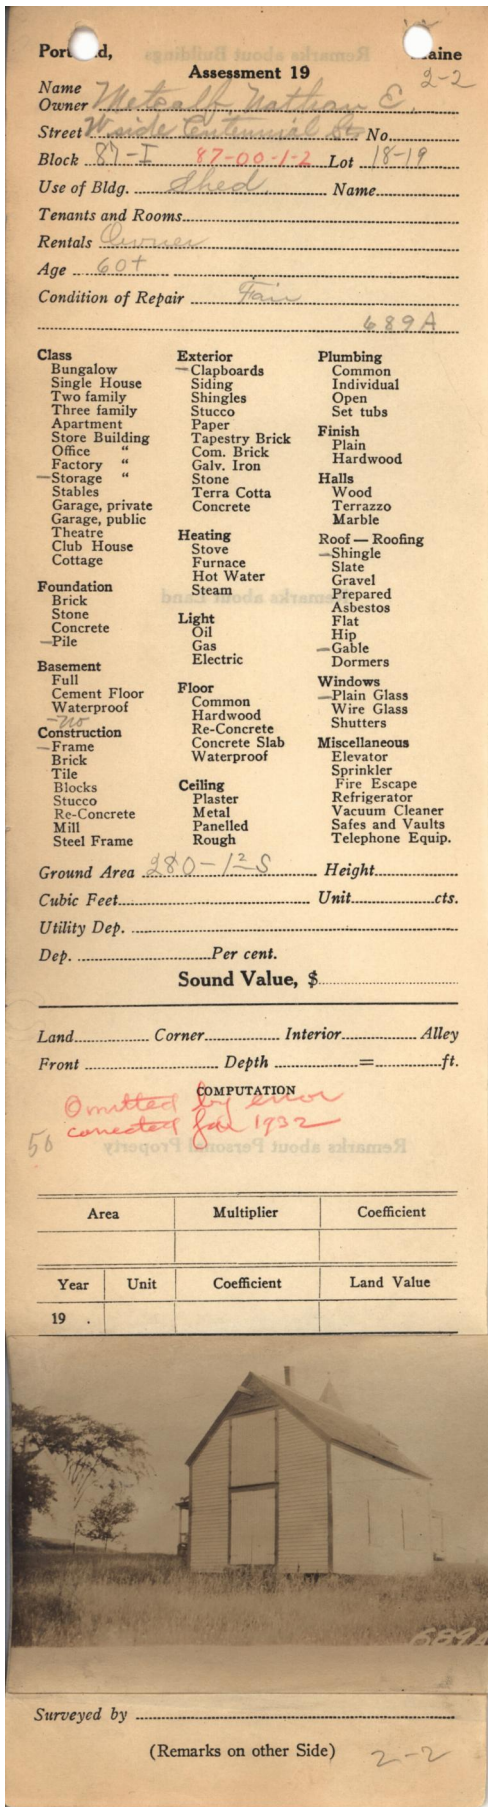 Portland, Maine
Assessment 19
2-2
Name
Owner Metcalf, Nathan E.
Street W side Centennial St. No.
Block 87-I 87-00-1-2 Lot 18-19
Use of Bldg. Shed Name
Tenants and Rooms
Rentals Owner
Age 60+
Condition of Repair Fair
689A
Class
Bungalow
Single House
Two family
Three family
Apartment
Store Building
Office "
Factory "
Storage "
Stables
Garage, private
Garage, public
Theatre
Club House
Cottage
Foundation
Brick
Stone
Concrete
Pile
Basement
Full
Cement Floor
Waterproof
no
Construction
Frame
Brick
Tile
Blocks
Stucco
Re-Concrete
Mill
Steel Frame
Exterior
Clapboards
Siding
Shingles
Stucco
Paper
Tapestry Brick
Com. Brick
Galv. Iron
Stone
Terra Cotta
Concrete
Heating
Stove
Furnace
Hot Water
Steam
Light
Oil
Gas
Electric
Floor
Common
Hardwood
Re-Concrete
Concrete Slab
Waterproof
Ceiling
Plaster
Metal
Panelled
Rough
Plumbing
Common
Individual
Open
Set tubs
Finish
Plain
Hardwood
Halls
Wood
Terrazzo
Marble
Roof — Roofing
Shingle
Slate
Gravel
Prepared
Asbestos
Flat
Hip
Gable
Dormers
Windows
Plain Glass
Wire Glass
Shutters
Miscellaneous
Elevator
Sprinkler
Fire Escape
Refrigerator
Vacuum Cleaner
Safes and Vaults
Telephone Equip.
Ground Area 280-1 2 S Height
Cubic Feet Unit cts.
Utility Dep.
Dep. Per cent.
Sound Value, $
Land Corner Interior Alley
Front Depth = ft.
COMPUTATION
Omitted by error
corrected for 1932
50
Area Multiplier Coefficient
Year Unit Coefficient Land Value
19 .
689A
Surveyed by
(Remarks on other Side) 2-2